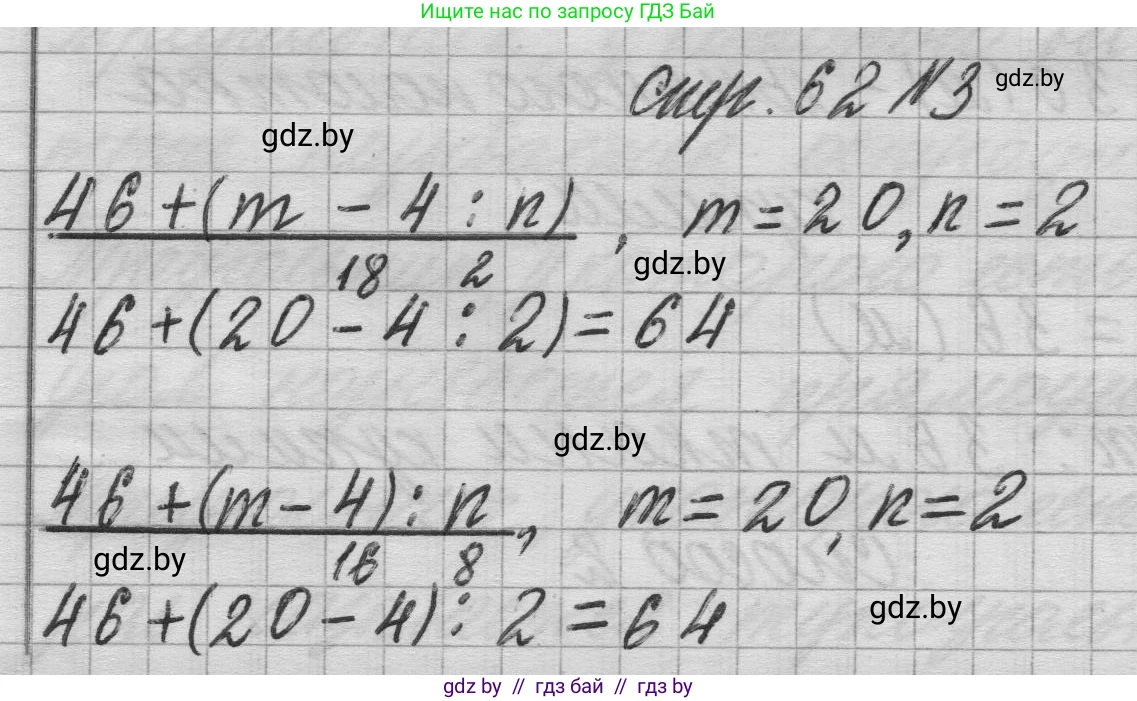 Ищите нас по запросу ГДЗ Бай
стр. 62 №3 gdz.by
gdz.by
46 + (m - 4 : n), m = 20, n = 2
gdz.by
18 2
46 + (20 - 4 : 2) = 64
gdz.by
46 + (m - 4) : n, m = 20, n = 2
gdz.by
16 8
46 + (20 - 4) : 2 = 64
gdz.by
gdz by // гдз бай // гдз by